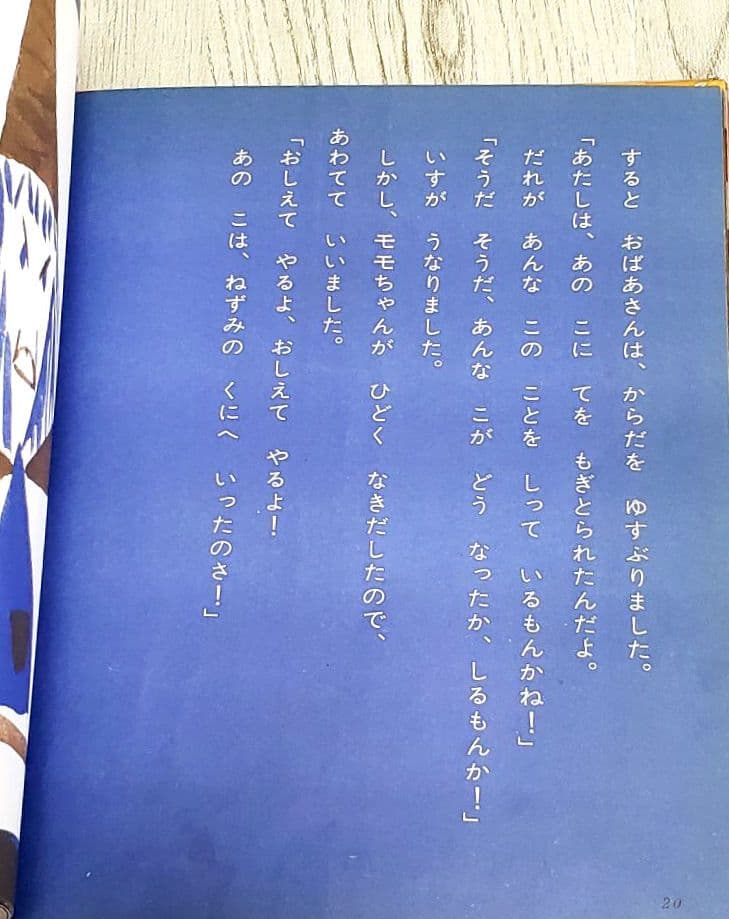 すると　おばあさんは、からだを　ゆすぶりました。
「あたしは、あの　こに　てを　もぎとられたんだよ。
だれが　あんな　この　ことを　しって　いるもんかね！」
「そうだ　そうだ、あんな　こが　どう　なったか、しるもんか！」
いすが　うなりました。
しかし、モモちゃんが　ひどく　なきだしたので、
あわてて　いいました。
「おしえて　やるよ、おしえて　やるよ！
あの　こは、ねずみの　くにへ　いったのさ！」
20